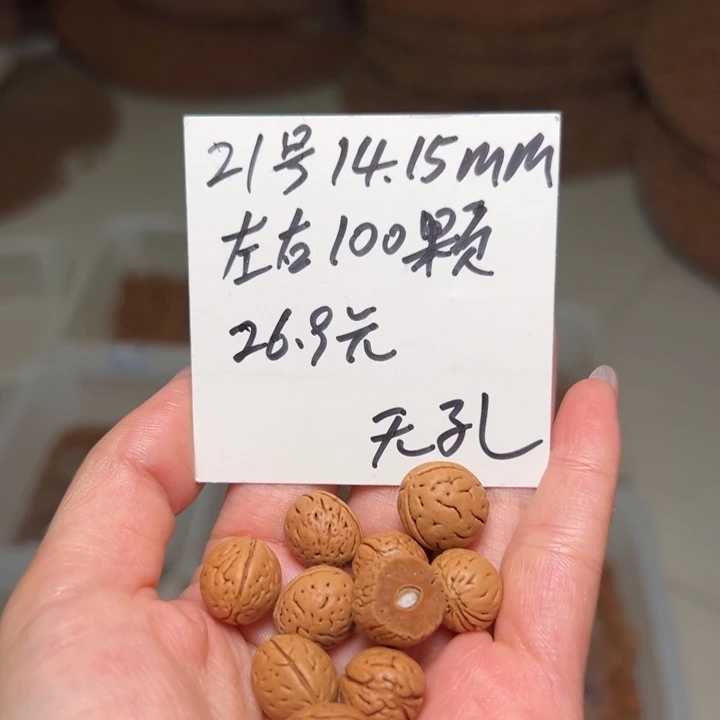 21号14.15mm
左右100颗
26.9元
无孔